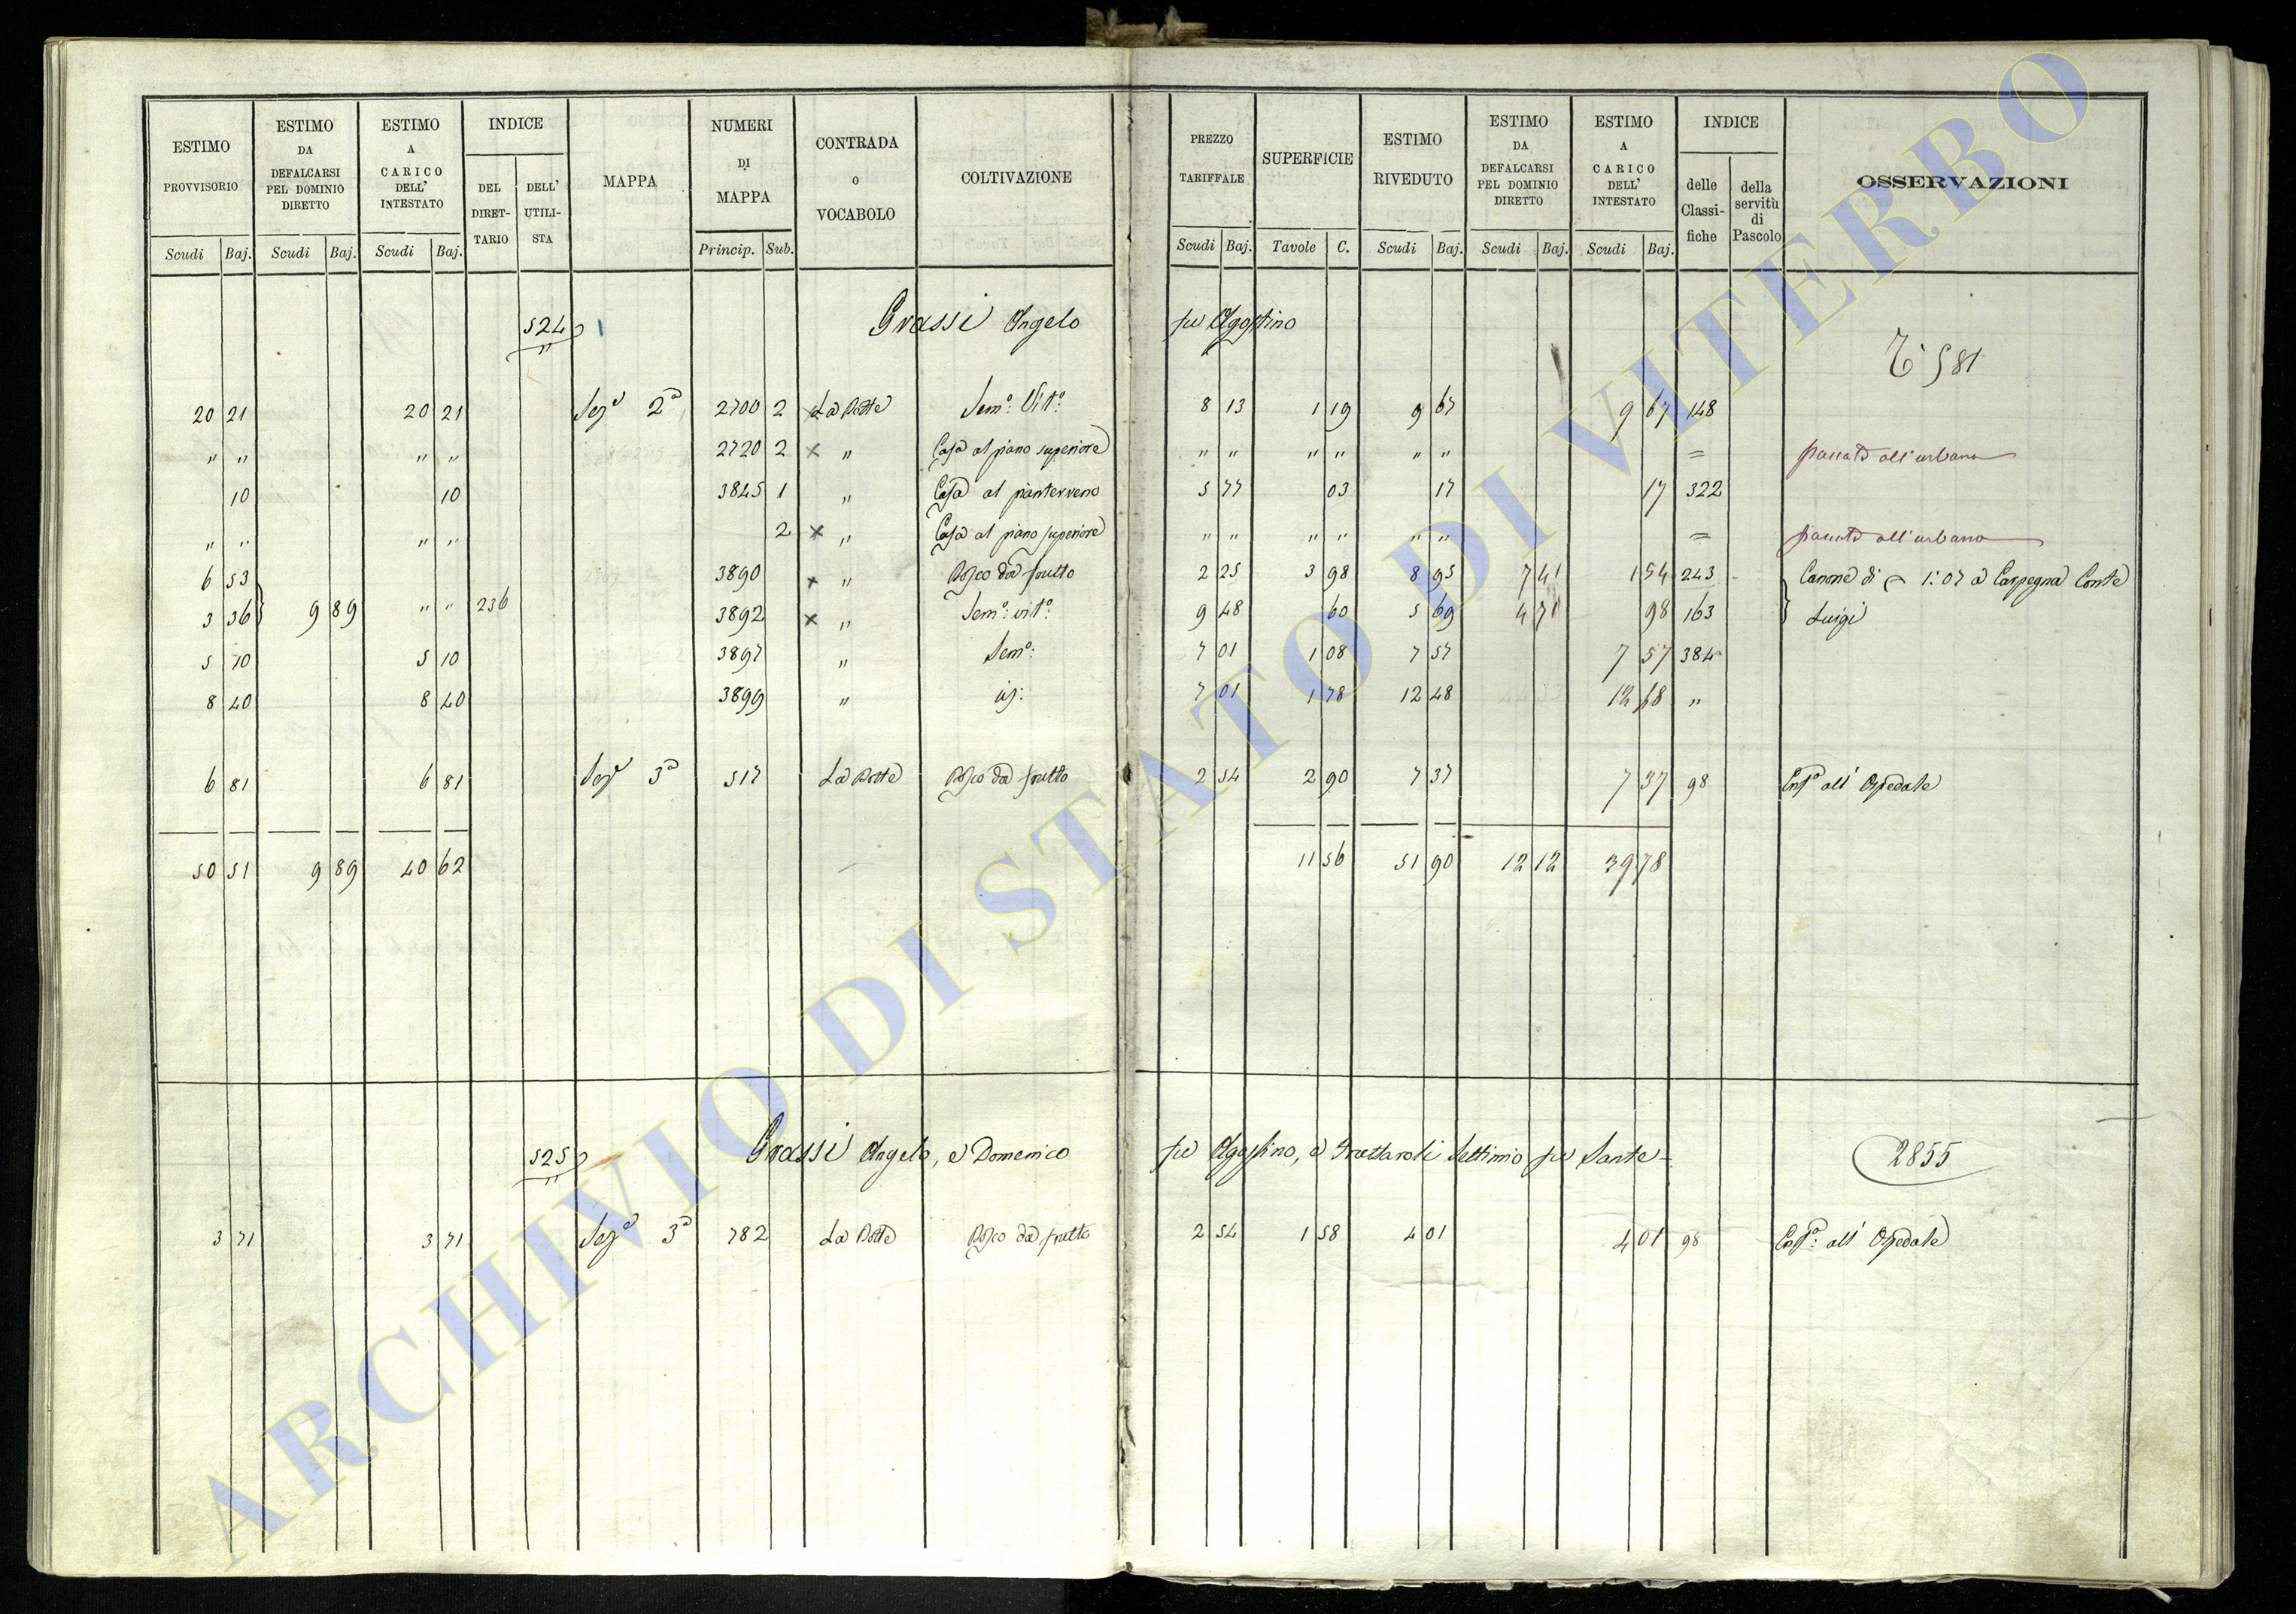 ESTIMO PROVVISORIO Scudi Baj.
ESTIMO DA DEFALCARSI PEL DOMINIO DIRETTO Scudi Baj.
ESTIMO A CARICO DELL' INTESTATO Scudi Baj.
INDICE DEL DIRET-TARIO DELL' UTILI-STA
MAPPA
NUMERI DI MAPPA Princip. Sub.
CONTRADA o VOCABOLO
COLTIVAZIONE
PREZZO TARIFFALE Scudi Baj.
SUPERFICIE Tavole C.
ESTIMO RIVEDUTO Scudi Baj.
ESTIMO DA DEFALCARSI PEL DOMINIO DIRETTO Scudi Baj.
ESTIMO A CARICO DELL' INTESTATO Scudi Baj.
INDICE delle Classi-fiche della servitù di Pascolo
OSSERVAZIONI
524 Grassi Angelo fu Agostino
581
20 21 20 21 Sez.e 2a 2700 2 La Botte Sem.o: Vit.o: 8 13 1 19 9 67 9 67 148
" " " " 2720 2 × " Casa al piano superiore " " " " " " = passata all'urbano
10 10 3845 1 " Casa al pianterreno 5 77 03 17 17 322
" " " " 2 × " Casa al piano superiore " " " " " " = passata all'urbano
6 53 3890 × " Bosco da frutto 2 25 3 98 8 95 7 41 1 54 243 Canone di 1:07 a Carpegna Conte
3 36 9 89 " " 236 3892 × " Sem.o: vit.o: 9 48 60 5 69 4 71 98 163 Luigi
5 10 5 10 3897 " Sem.o: 7 01 1 08 7 57 7 57 384
8 40 8 40 3899 " id: 7 01 1 78 12 48 12 48 "
6 81 6 81 Sez.e 3a 517 La Botte Bosco da frutto 2 54 2 90 7 37 7 37 98 Enf.a all' Ospedale
50 51 9 89 40 62 11 56 51 90 12 12 39 78
525 Grassi Angelo, e Domenico fu Agostino, e Trattaroli Settimio fu Sante
2855
3 71 3 71 Sez.e 3a 782 La Botte Bosco da frutto 2 54 1 58 4 01 4 01 98 Enf.a: all' Ospedale
ARCHIVIO DI STATO DI VITERBO